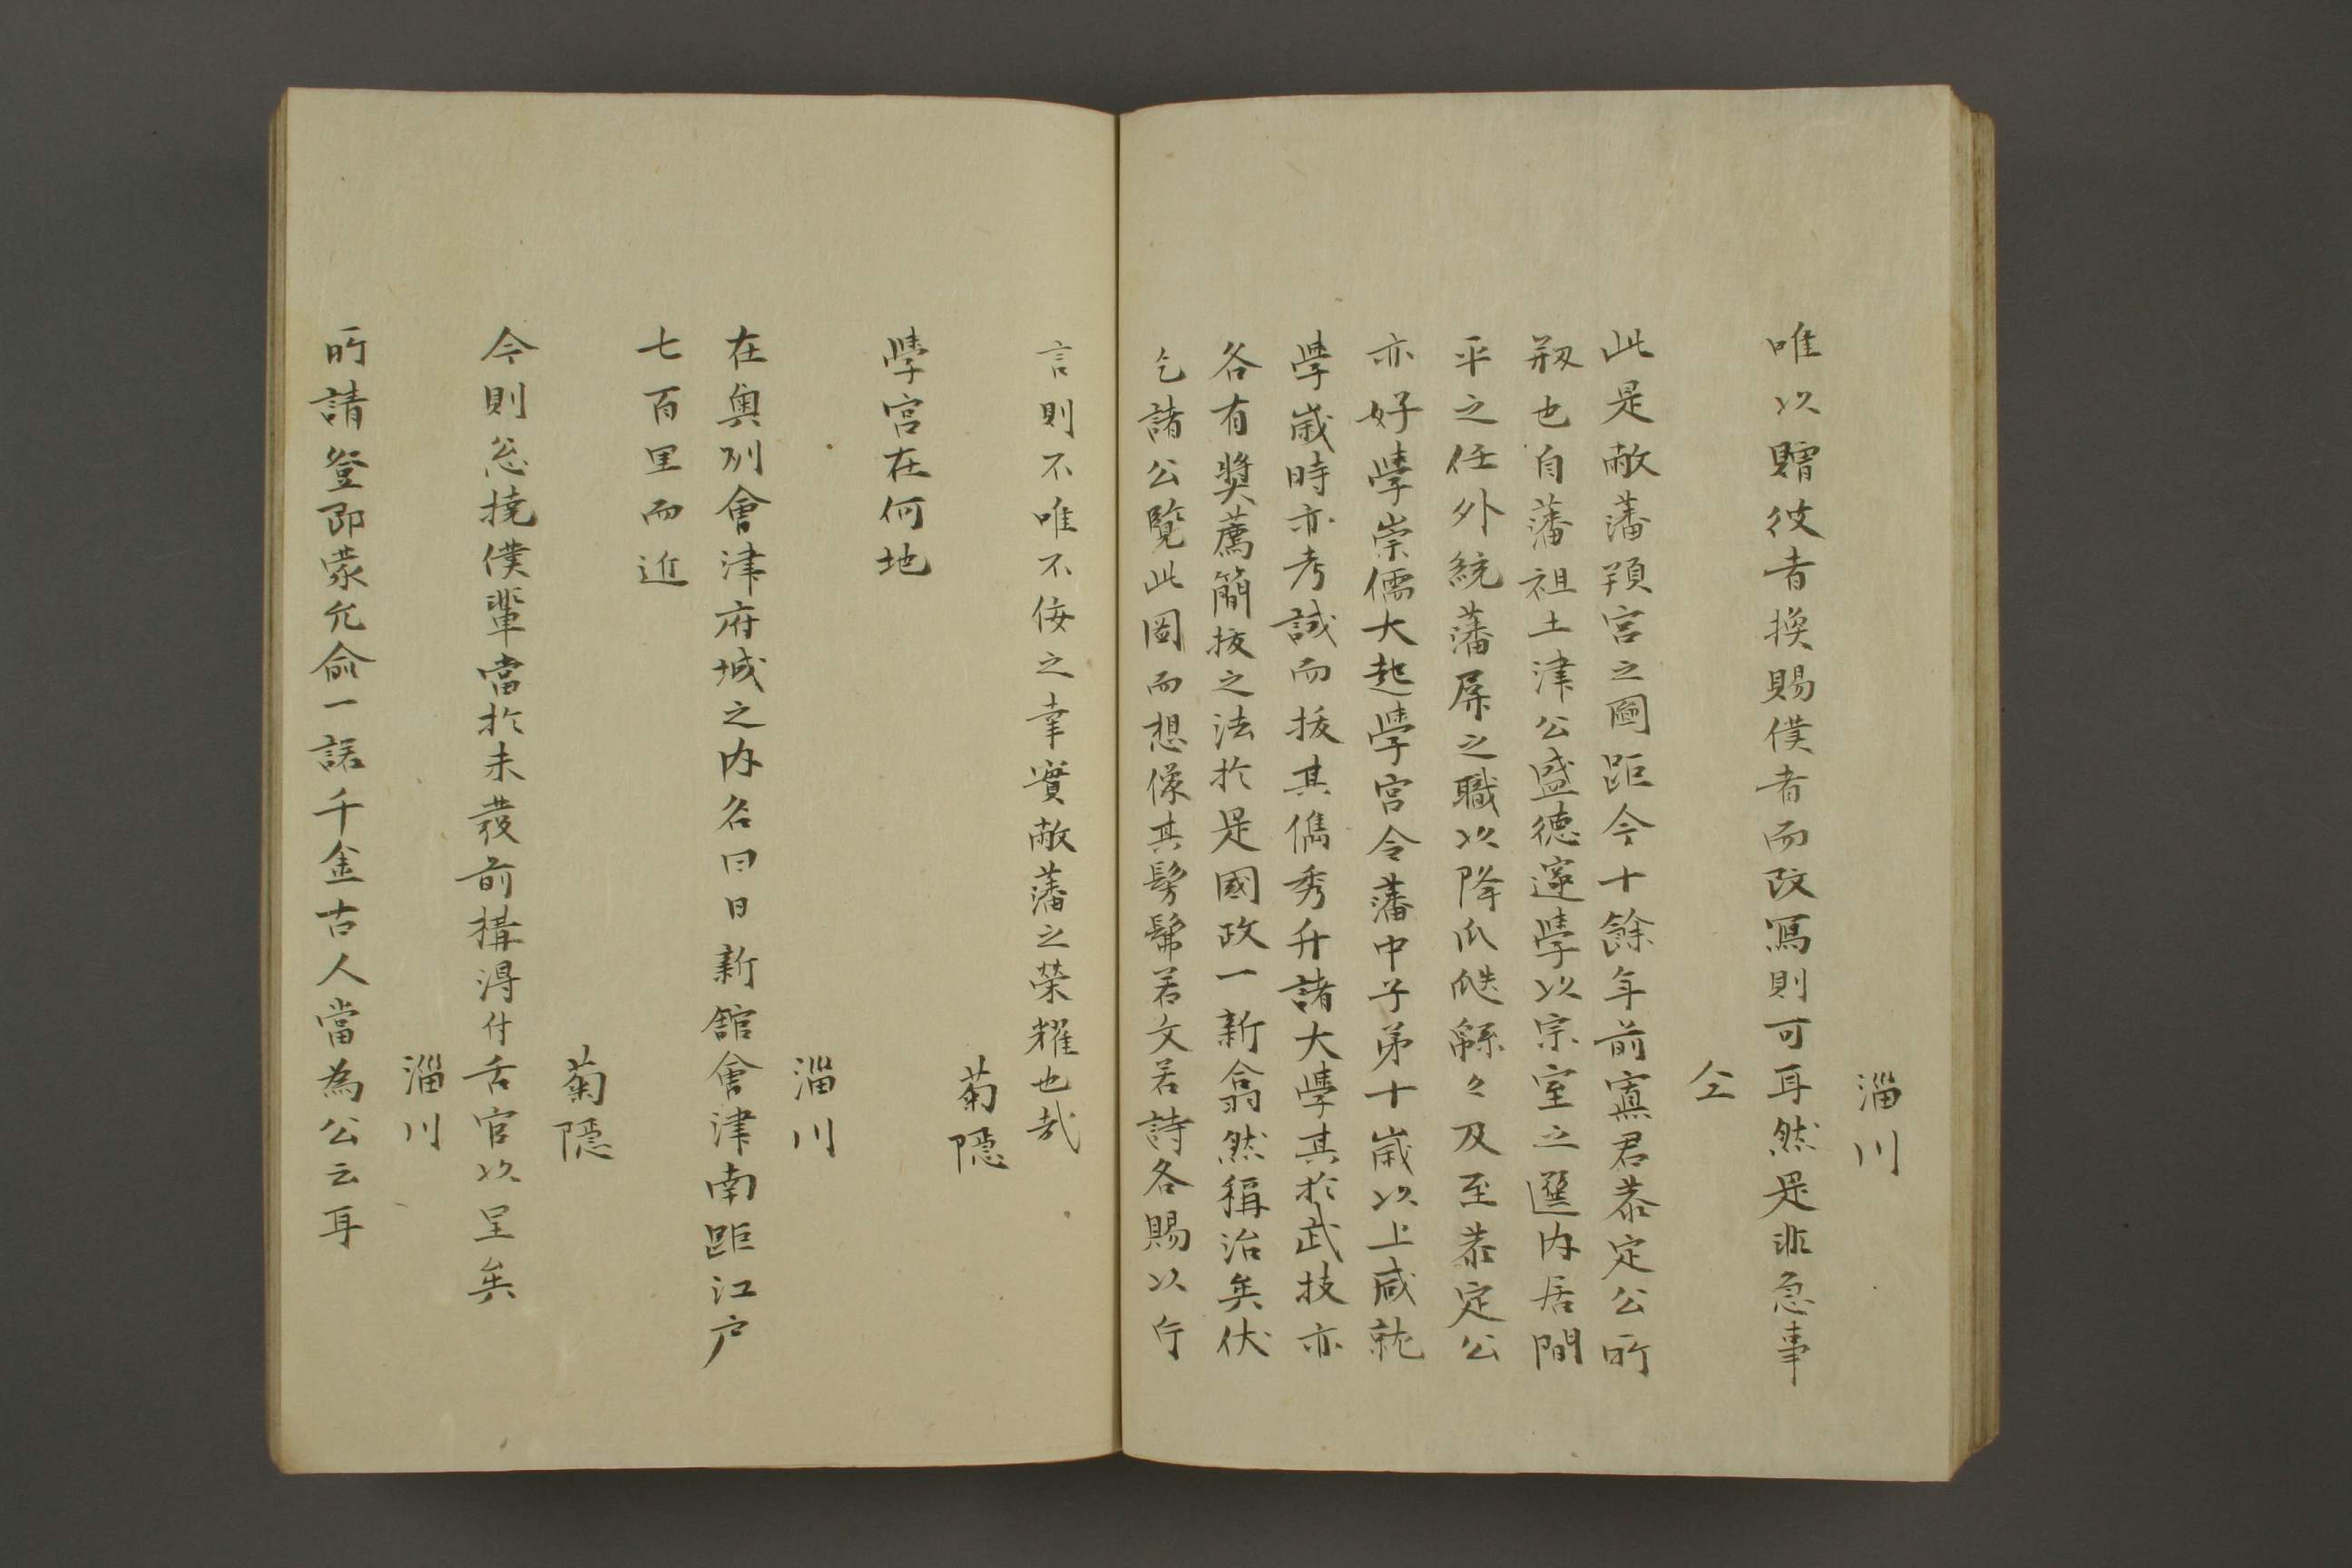 淄川
唯以贈彼者換賜僕者而改寫則可耳然是非急事
仝
此是敝藩頖宮之圖距今十餘年前寡君恭定公所
剏也自藩祖土津公盛德邃學以宗室之選內居間
平之任外統藩屏之職以降瓜瓞緜々及至恭定公
亦好學崇儒大起學宮令藩中子弟十歲以上咸就
學歲時亦考試而拔其儁秀升諸大學其於武技亦
各有獎薦簡拔之法於是國政一新翕然稱治矣伏
乞諸公覽此圖而想像其髣髴若文若詩各賜以片
言則不唯不佞之幸實敝藩之榮耀也哉
菊隱
學宮在何地
淄川
在奧州會津府城之內名曰日新館會津南距江戶
七百里而近
菊隱
今則忩撓僕輩當於未發前搆得付舌官以呈矣
淄川
所請登即蒙允俞一諾千金古人當為公云耳